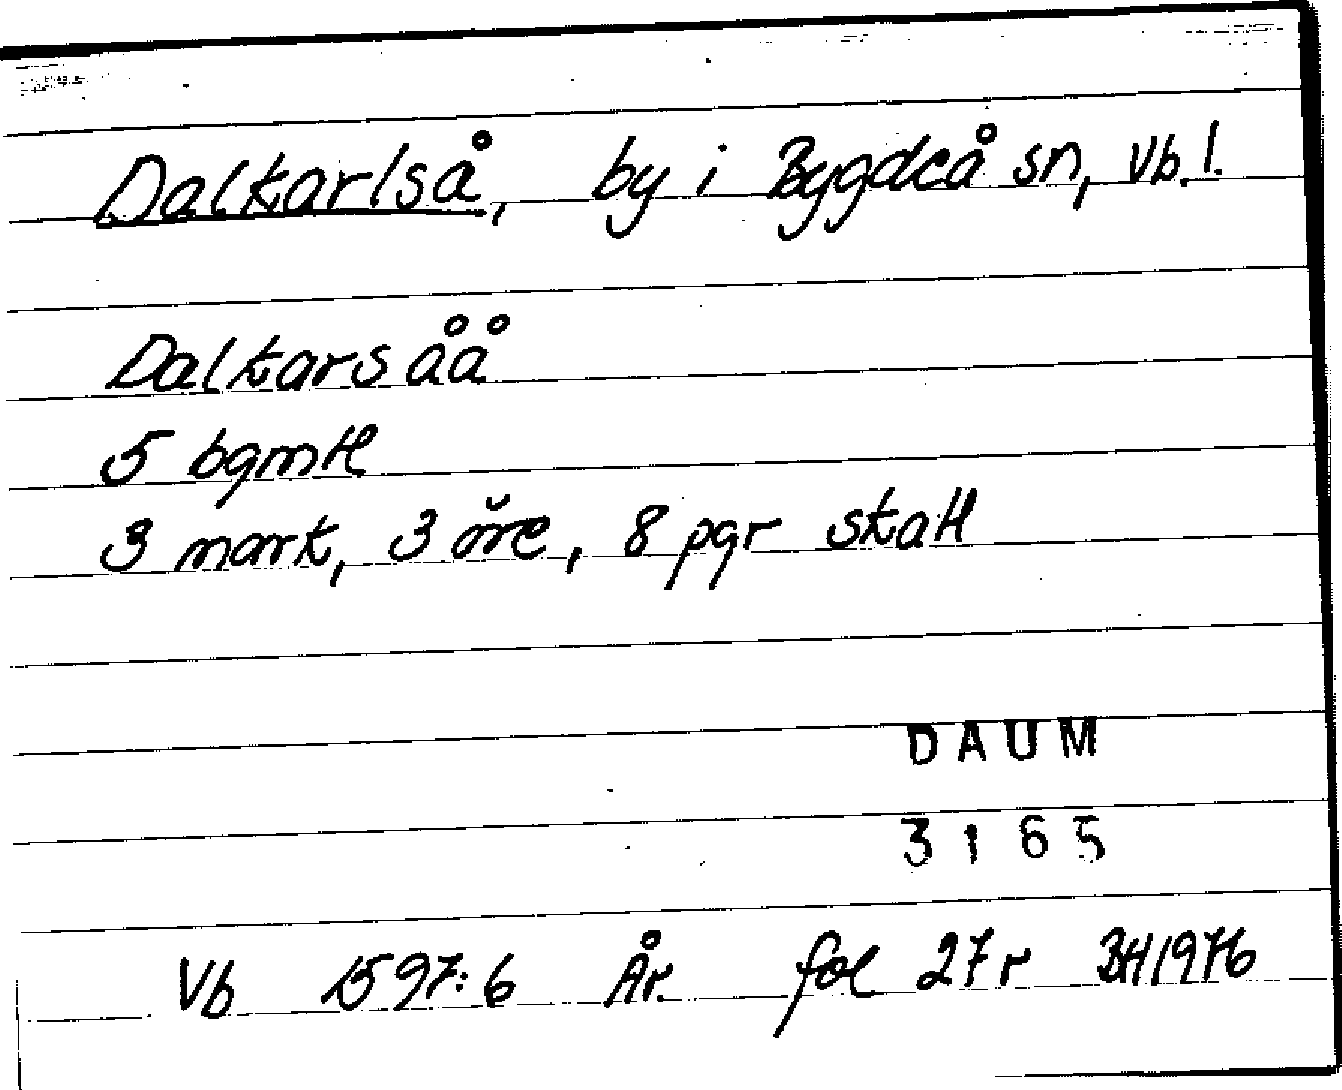 Dalkarlså, by i Bygdeå sn, Vb. l.
Dalkarsåå
5 bgmtl
3 mark, 3 öre, 8 pgr skatt
DAUM
3165
Vb 1597:6 År fol 27r BH1976